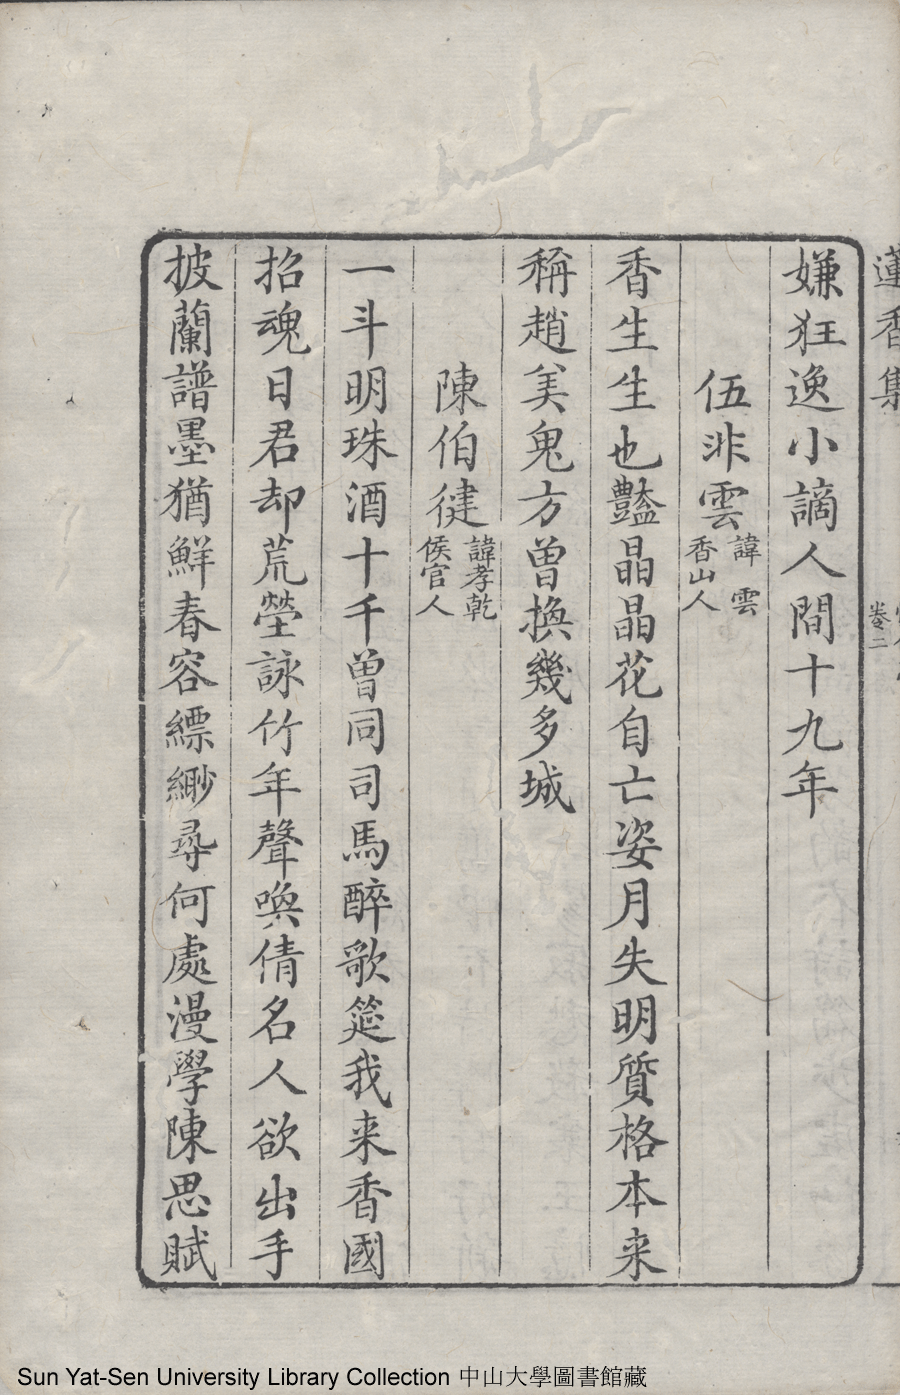 蓮香集
卷二
嫌狂逸小謫人間十九年
伍非雲 諱雲 香山人
香生生也豔晶晶花自亡姿月失明質格本来
稱趙美鬼方曾換幾多城
陳伯徤 諱孝乾 侯官人
一斗明珠酒十千曾同司馬醉歌筵我来香國
招魂日君却荒塋詠竹年聲喚倩名人欲出手
披蘭譜墨猶鮮春容縹緲尋何處漫學陳思賦
Sun Yat-Sen University Library Collection 中山大學圖書館藏